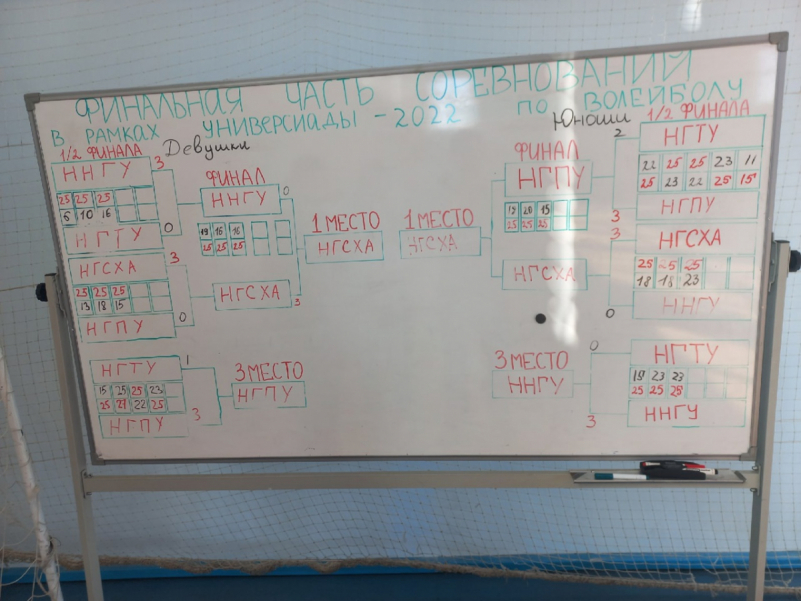 ФИНАЛЬНАЯ ЧАСТЬ СОРЕВНОВАНИЙ
В РАМКАХ УНИВЕРСИАДЫ - 2022 ПО ВОЛЕЙБОЛУ
Девушки
1/2 ФИНАЛА
ННГУ 3
25 25 25
6 10 16
НГТУ 0
НГСХА 3
25 25 25
13 18 15
НГПУ 0
ФИНАЛ
ННГУ 0
19 16 16
25 25 25
НГСХА 3
1 МЕСТО
НГСХА
НГТУ 1
15 25 25 23
25 27 22 25
НГПУ 3
3 МЕСТО
НГПУ
Юноши
1/2 ФИНАЛА
2 НГТУ
22 25 25 23 11
25 23 22 25 15
3 НГПУ
3 НГСХА
25 25 25
18 18 23
0 ННГУ
ФИНАЛ
НГПУ
20 15
25 25 25
НГСХА
1 МЕСТО
НГСХА
0 НГТУ
19 23 23
25 25 25
3 ННГУ
3 МЕСТО
ННГУ